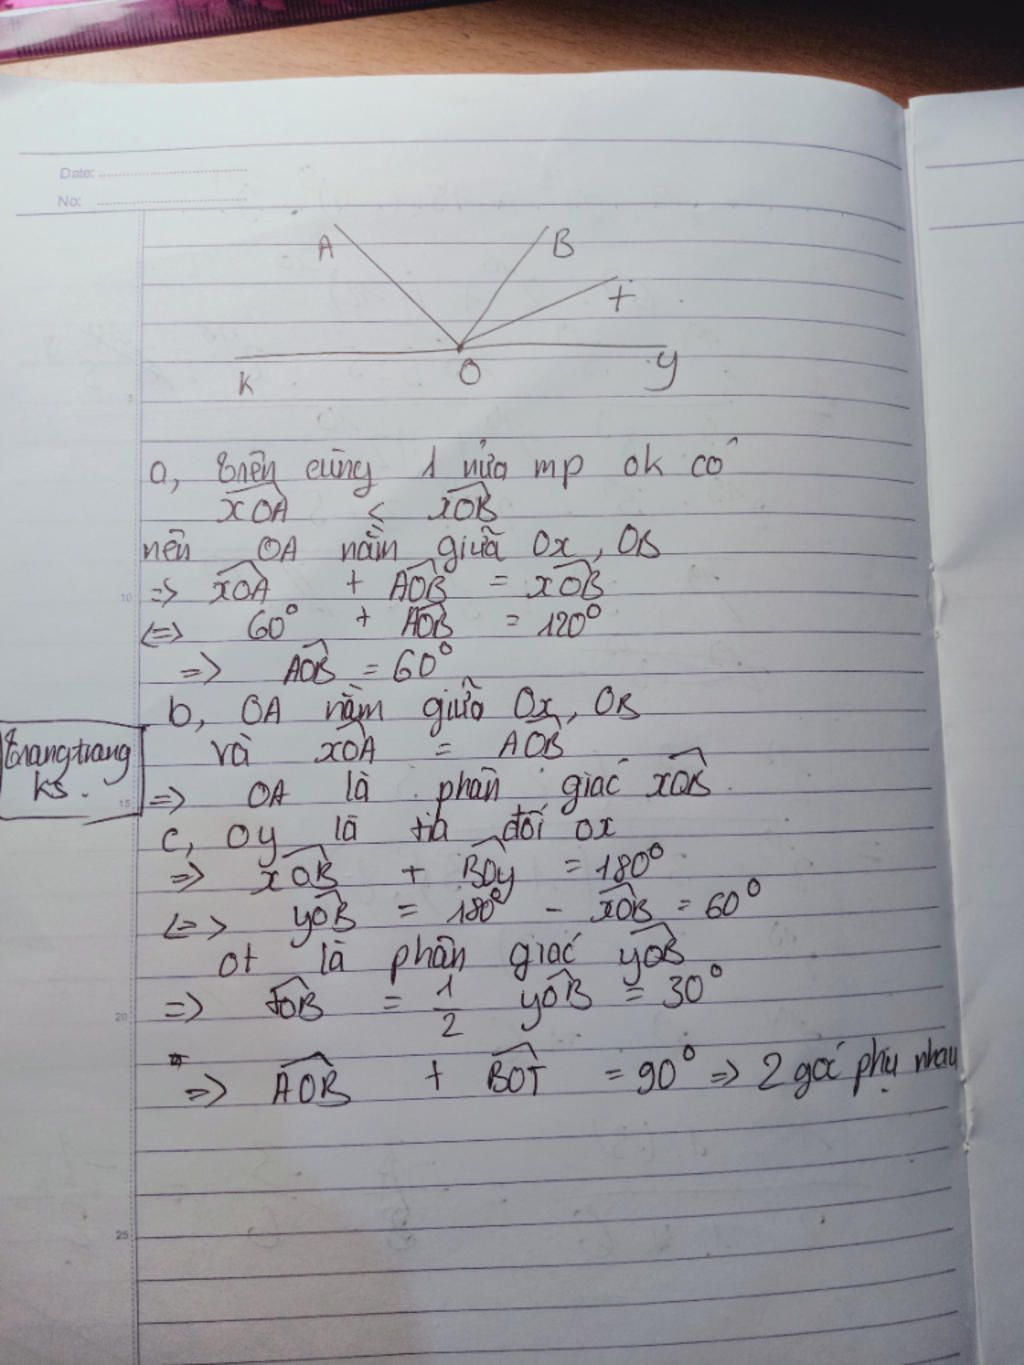 Date:
No:
A
B
t
K
O
y
a, trên cùng 1 nửa mp ok có
xOA < xOB
nên OA nằm giữa Ox, OB
=> xOA + AOB = xOB
<=> 60° + AOB = 120°
=> AOB = 60°
b, OA nằm giữa Ox, OB
và xOA = AOB
Trangtrang
ks.
=> OA là phân giác xOB.
c, Oy là tia đối Ox
=> xOB + BOy = 180°
<=> yOB = 180° - xOB = 60°
Ot là phân giác yOB
=> tOB = 1/2 yOB = 30°
=> AOB + BOT = 90° => 2 góc phụ nhau
5
10
15
20
25